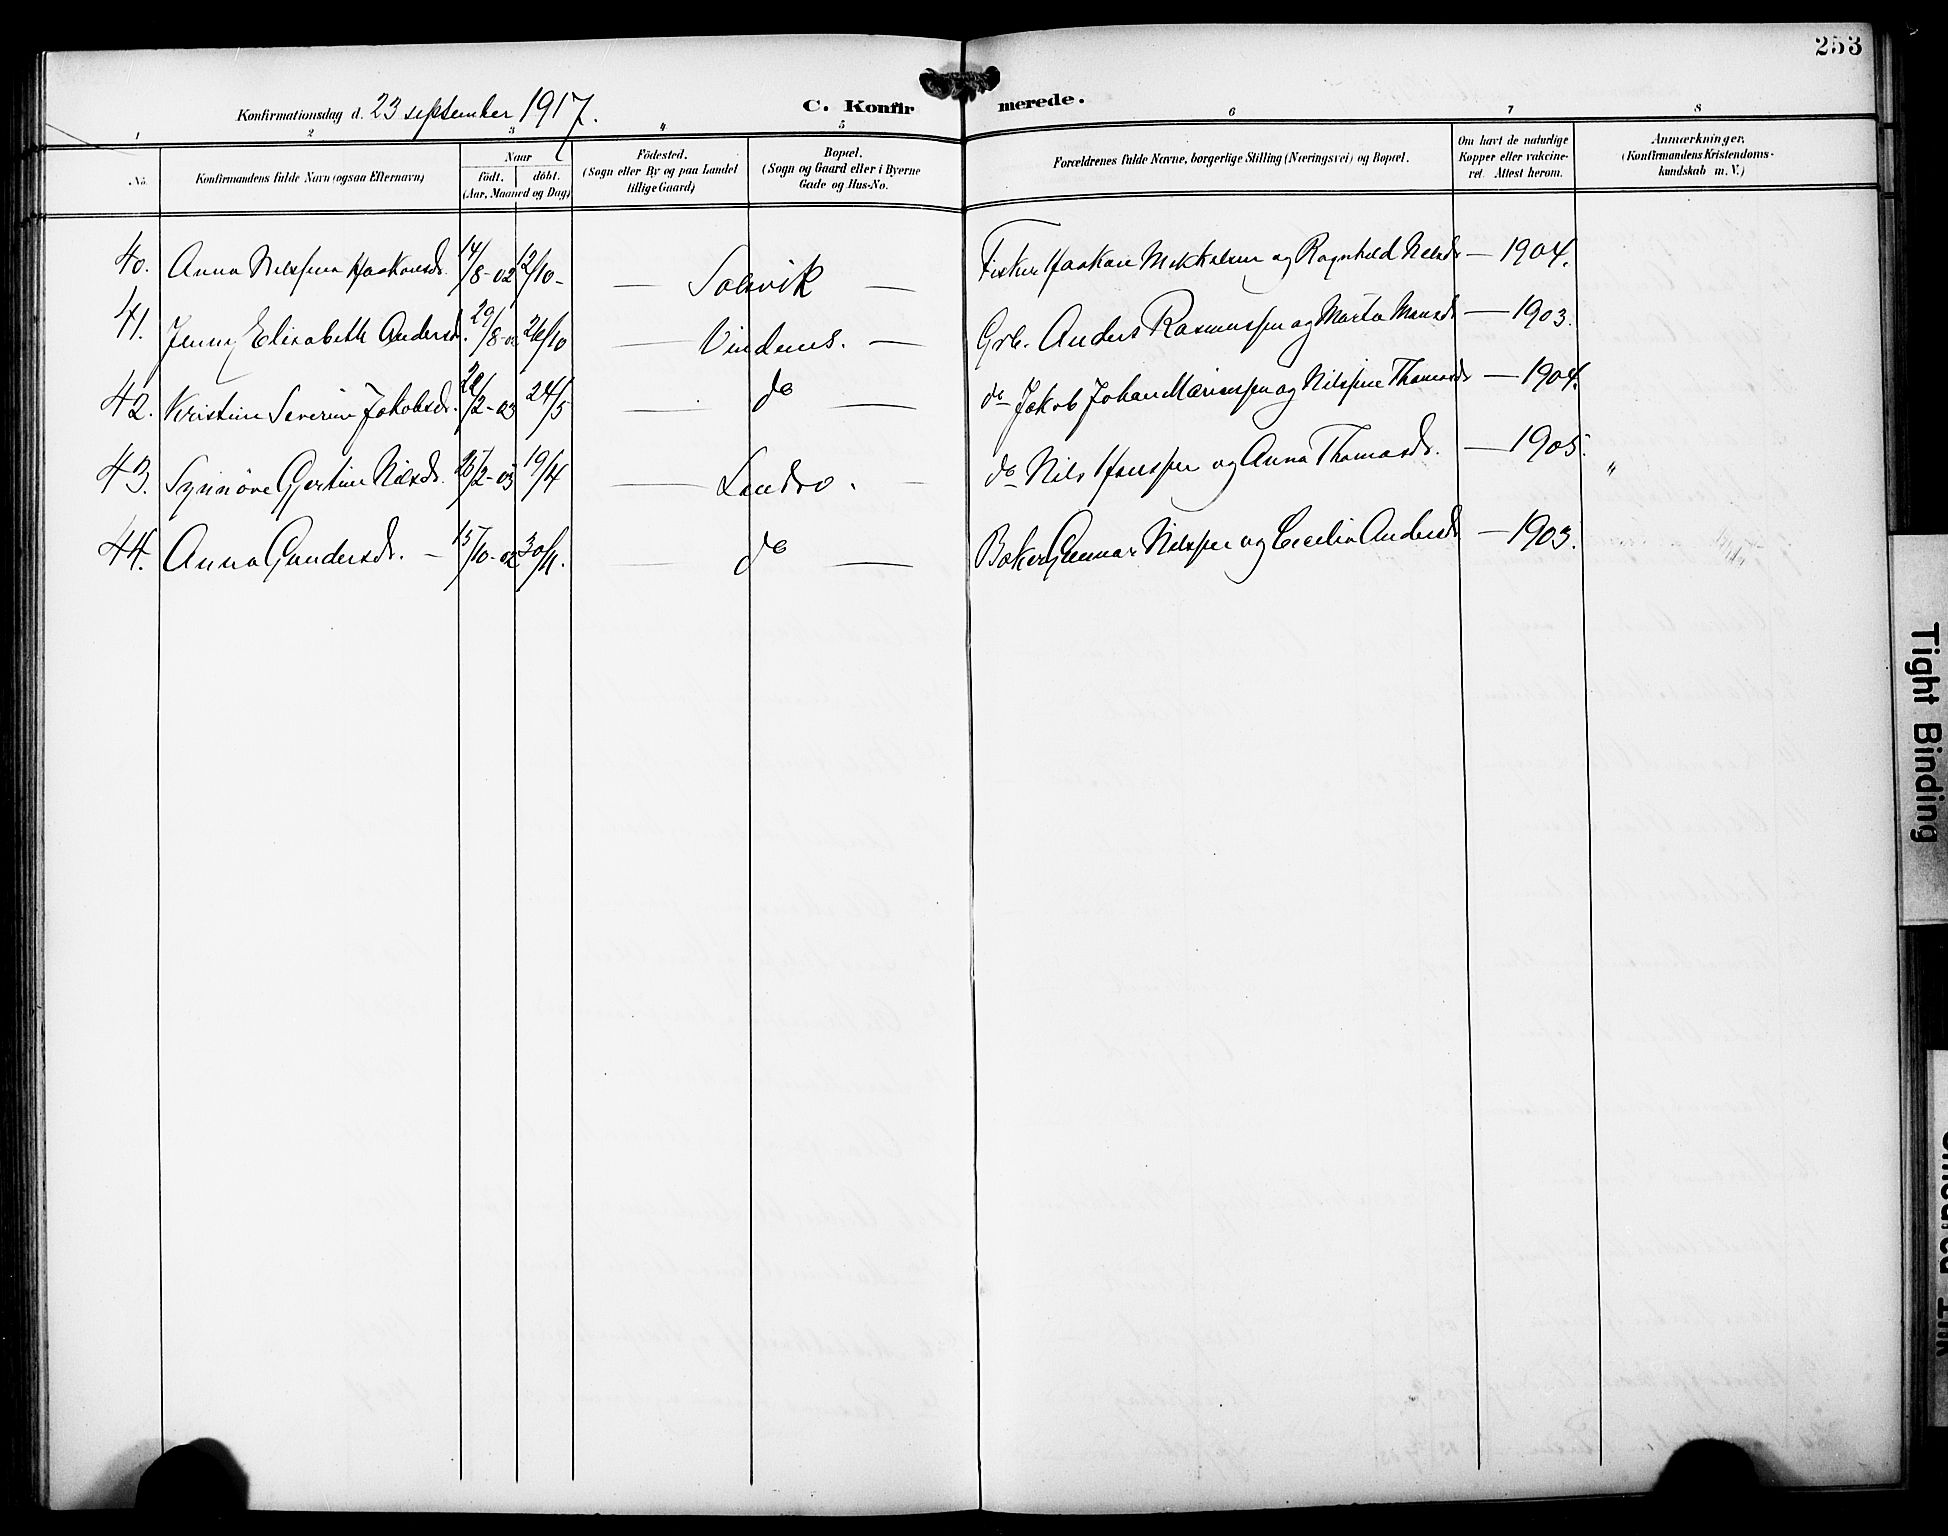 253
Konfirmationsdag d. 23 september 1917.
C. Konfirmerede.
1 2 3 4 5 6 7 8
No.
Konfirmandens fulde Navn (ogsaa Efternavn)
Naar
födt. döbt.
(Aar, Maaned og Dag)
Födested.
(Sogn eller By og paa Landet
tillige Gaard)
Bopæl.
(Sogn og Gaard eller i Byerne
Gade og Hus-No.
Forældrenes fulde Navne, borgerlige Stilling (Næringsvei) og Bopæl.
Om havt de naturlige
Kopper eller vakcine-
ret. Attest herom.
Anmærkninger.
(Konfirmandens Kristendoms-
kundskab m. V.)
40. Anna Nilsfina Haakonsdr. 14/8-02 12/10- — Solsvik — Fisker Haakon Mikkelsen og Ragnhild Nilsdr — 1904.
41. Jenny Elisabeth Andersdr. 29/8-02 26/10 — Vindenes. — Grb. Anders Rasmussen og Marta Monsdr — 1903.
42. Kristine Severine Jakobsdr. /2-03 24/5 — do — do Jakob Johan Mariussen og Nilsine Thomasdr — 1904.
43. Synnöve Gjertine Nilsdr. /2-03 19/4 — Landro. — do Nils Hanssen og Anna Thomasdr. — 1905. "
44. Anna Gundersdr. — 15/10-02 30/11. — do — Baker Gunnar Nilssen og Cecilia Andersdr — 1903.
Tight Binding